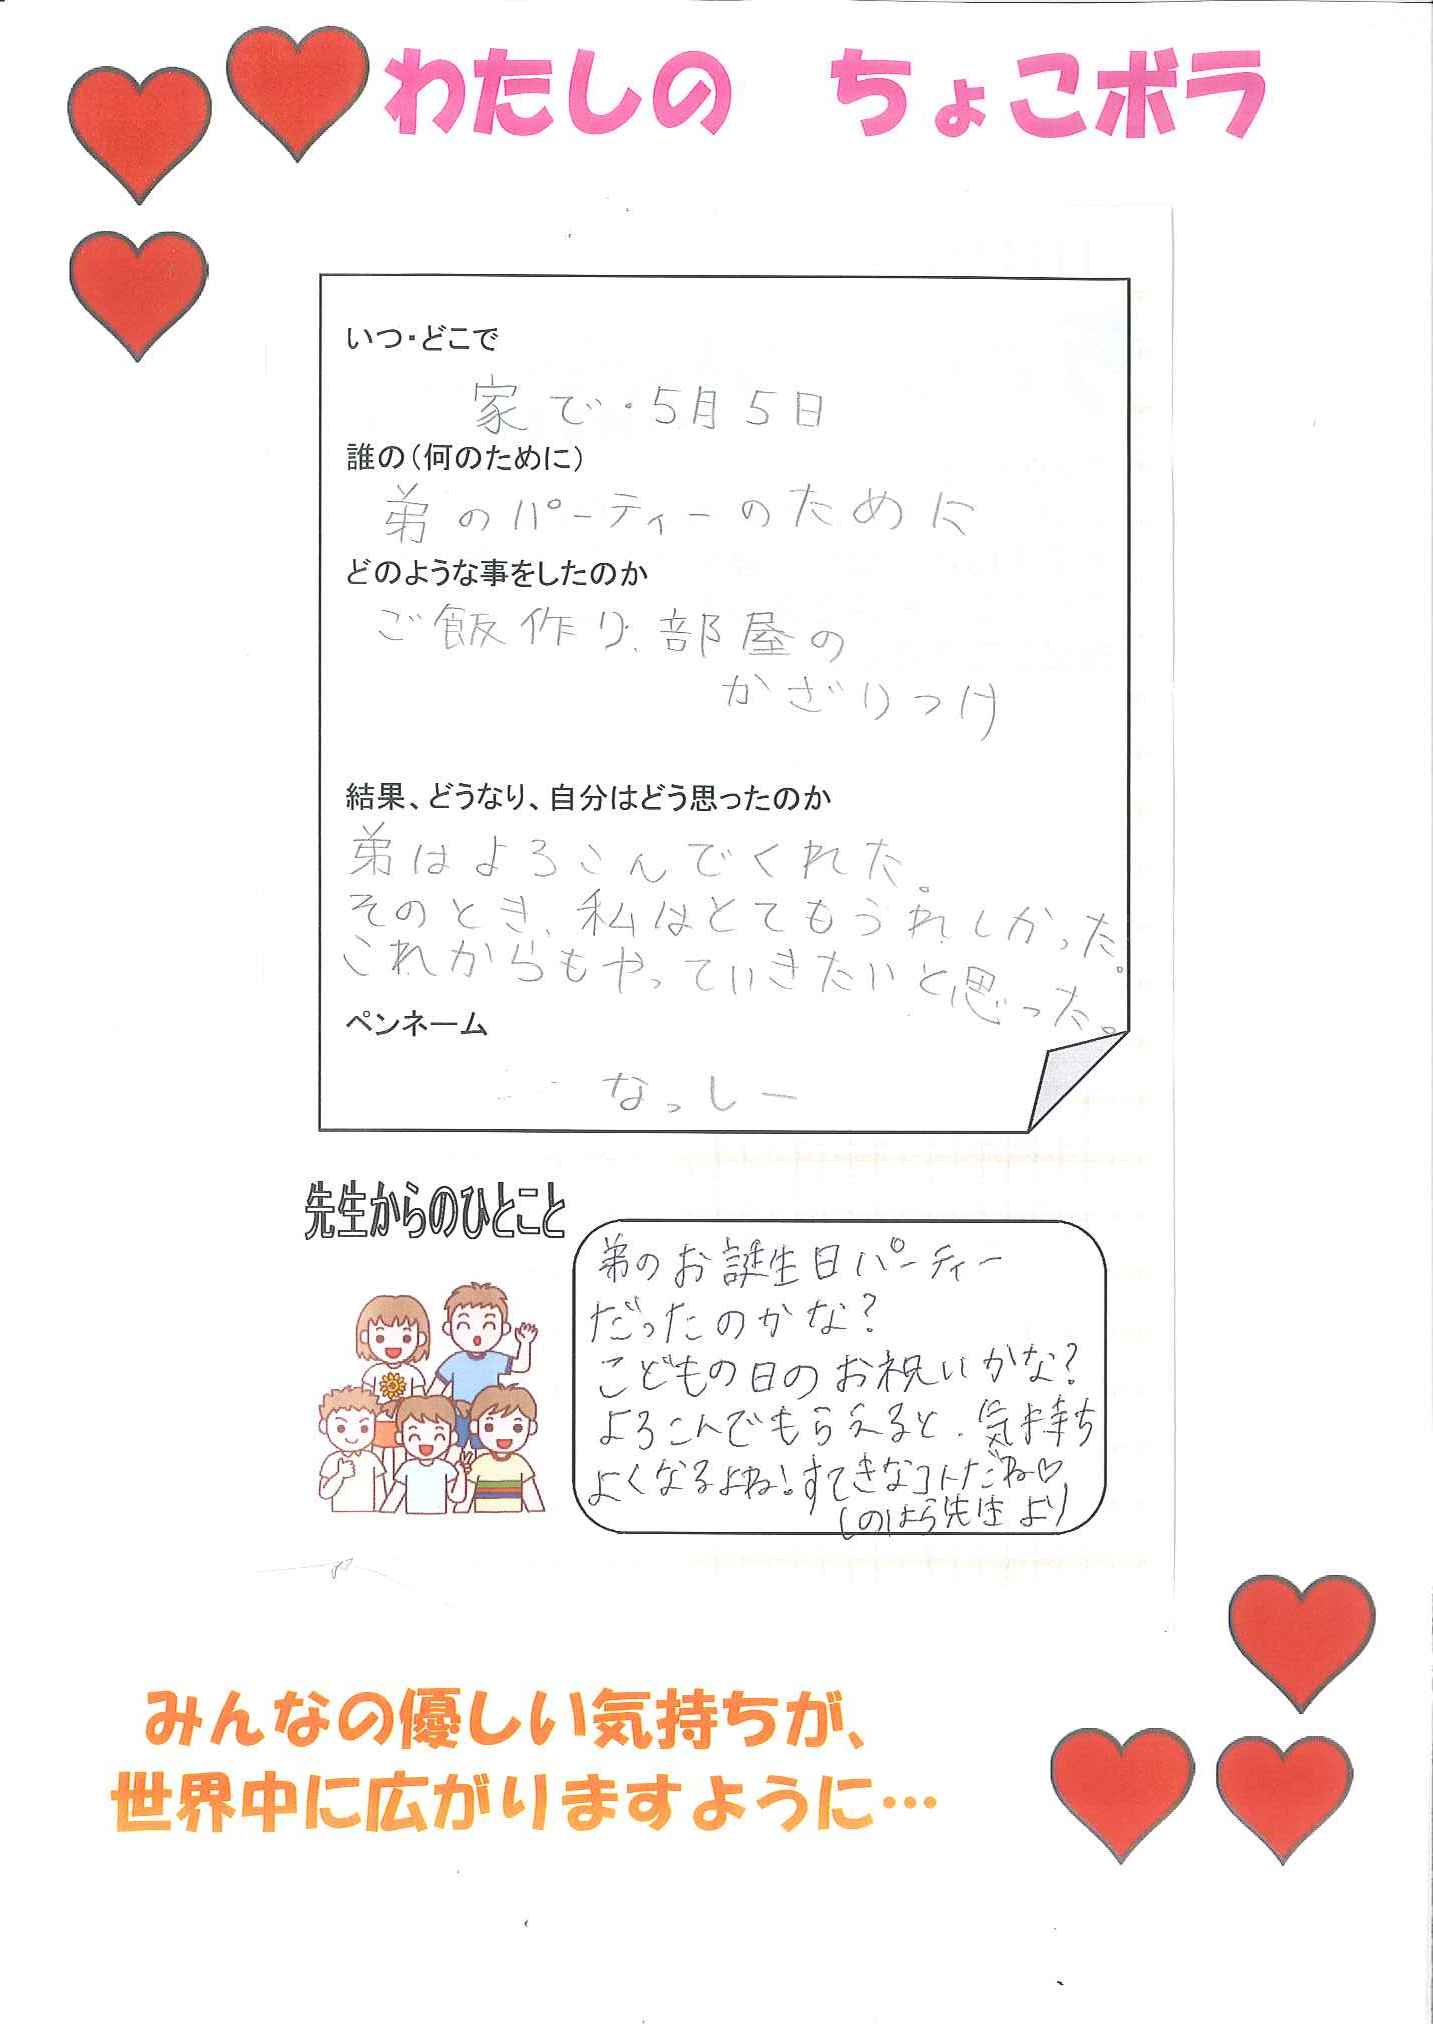 わたしの　ちょこボラ
いつ・どこで
家で・5月5日
誰の（何のために）
弟のパーティーのために
どのような事をしたのか
ご飯作り、部屋の
かざりつけ
結果、どうなり、自分はどう思ったのか
弟はよろこんでくれた。
そのとき、私はとてもうれしかった。
これからもやっていきたいと思った。
ペンネーム
なっしー
先生からのひとこと
弟のお誕生日パーティー
だったのかな？
こどもの日のお祝いかな？
よろこんでもらえると、気持ち
よくなるよね！すてきなコトだね♡
しのはら先生より
みんなの優しい気持ちが、
世界中に広がりますように…